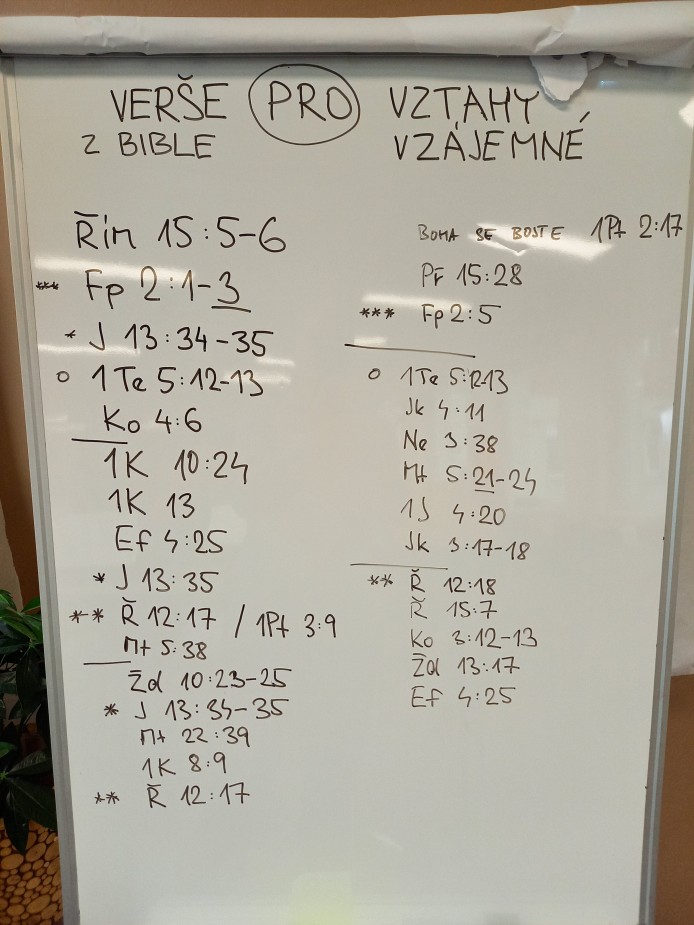 VERŠE PRO VZTAHY
Z BIBLE VZÁJEMNÉ
Řím 15:5-6
*** Fp 2:1-3
* J 13:34-35
o 1Te 5:12-13
Ko 4:6
1K 10:24
1K 13
Ef 4:25
* J 13:35
** Ř 12:17 / 1Pt 3:9
Mt 5:38
Žd 10:23-25
* J 13:34-35
Mt 22:39
1K 8:9
** Ř 12:17
BOHA SE BOJTE 1Pt 2:17
Př 15:28
*** Fp 2:5
o 1Te 5:12-13
Jk 4:11
Ne 3:38
Mt 5:21-24
1J 4:20
Jk 3:17-18
** Ř 12:18
Ř 15:7
Ko 3:12-13
Žd 13:17
Ef 4:25